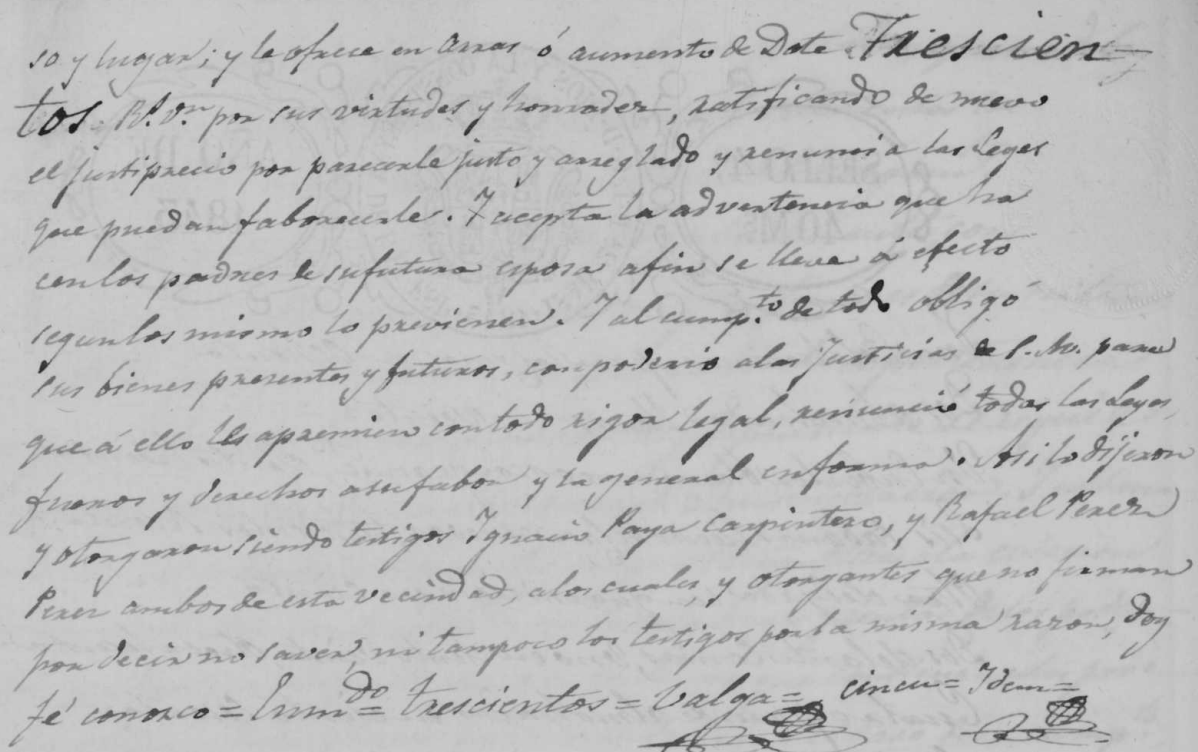 so y lugar; y le ofrece en arras ó aumento de Dote Trescien-
tos. Rs. vn. por sus virtudes y honradez, ratificando de nuevo
el justiprecio por parecerle justo y arreglado y renuncia las Leyes
que puedan faborecerle. Y acepta la advertencia que ha
cen los padres de su futura esposa afin se lleve á efecto
segun los mismo lo previenen. Y al cump.to de todo obligó
sus bienes presentes y futuros, con poderio alas Justicias de S. M. para
que á ello les apremien con todo rigor legal, renunció todas las Leyes,
fueros y derechos asu fabor y la general en forma. Asi lo dijeron
y otorgaron siendo testigos Ygnacio Paya Carpintero, y Rafael Perez
Perez ambos de esta vecindad, alos cuales, y otorgantes que no firman
por decir no saver, ni tampoco los testigos por la misma razon, doy
fé conozco = Enmdo = trescientos = Valga = = Ydem =